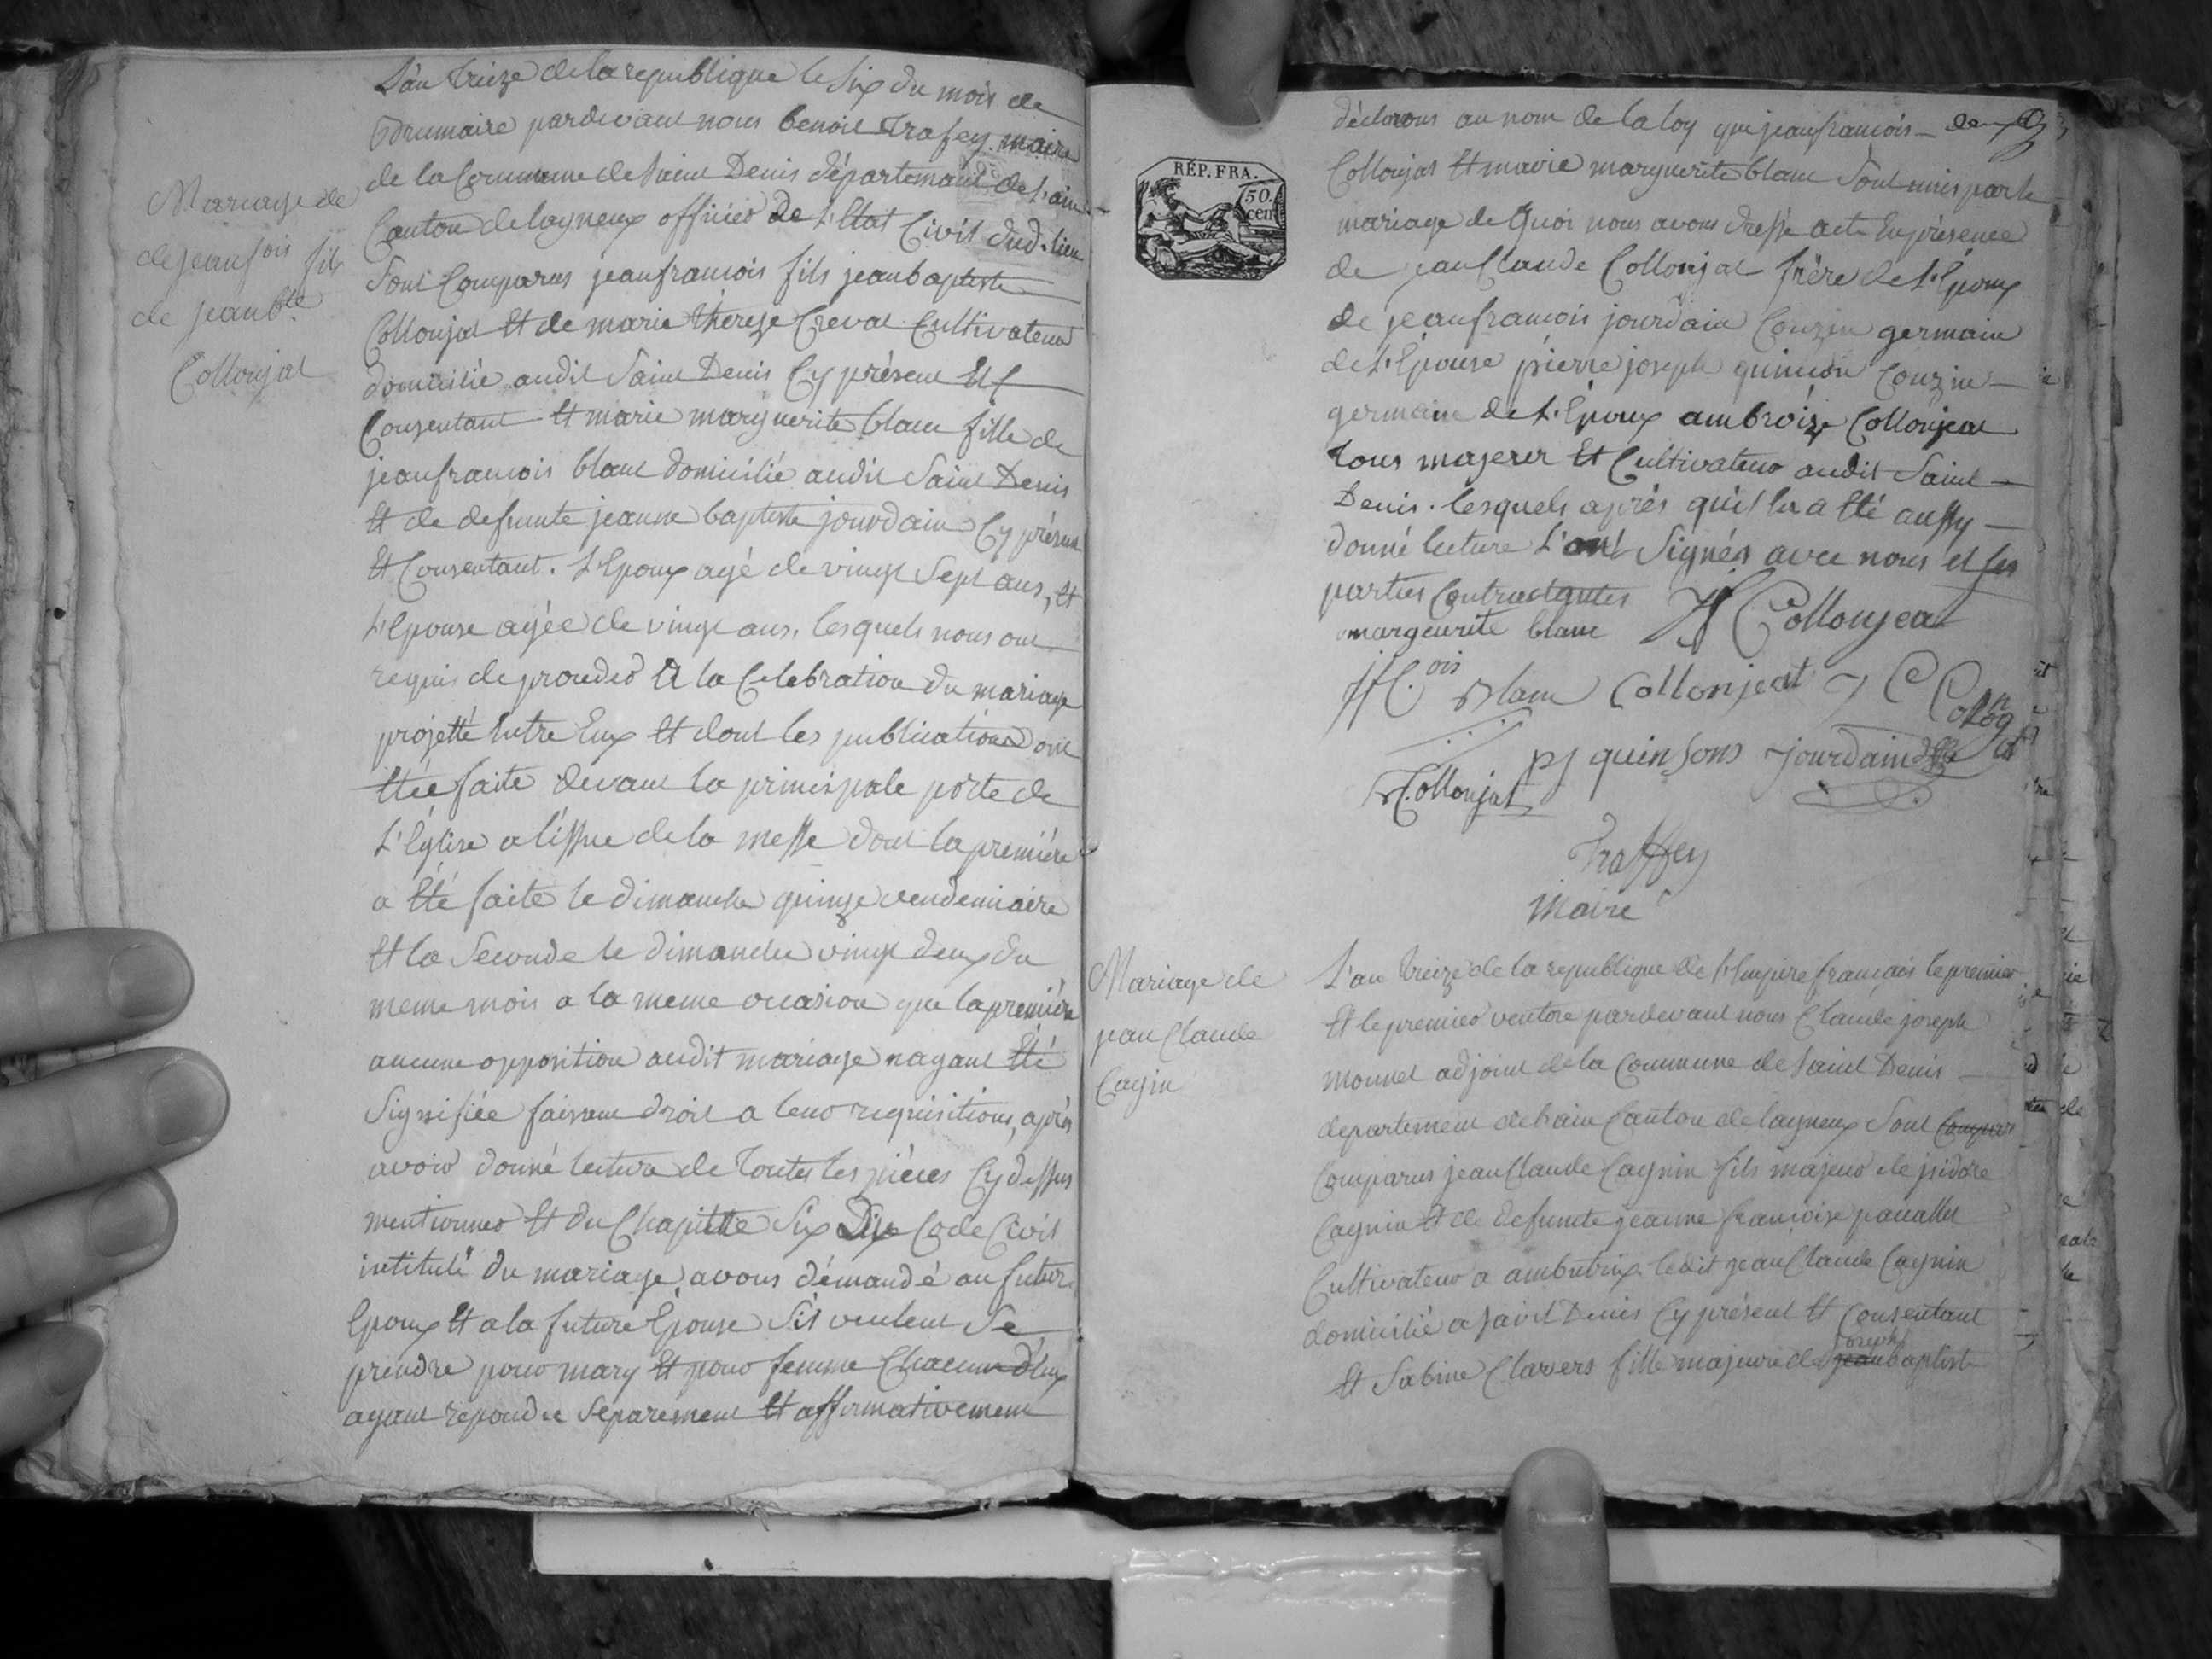 Mariage de
de jean fois fils
de jean bte
Collonjat
L'an treize de la republique le six du mois de
Brumaire pardevant nous benoit trafey maire
de la Commune de Saint Denis département de l'ain
Canton de lagneux officier de l'Etat Civil dud. lieu
sont Comparus jeanfrancois fils jeanbaptiste
Collonjat Et de marie thereze Creval Cultivateur
domicilié audit Saint Denis Cy présent Et
Consentant Et marie marguerite blanc fille de
jeanfrancois blanc domicilié audit Saint Denis
Et de defunte jeanne baptiste jourdain Cy présent
Et Consentant. L'Epoux agé de vingt Sept ans, Et
L'Epouse agée de vingt ans, lesquels nous ont
requis de proceder A la Celebration du mariage
projetté Entre Eux Et dont les publications ont
Etée faite devant la principale porte de
L'Eglise a l'issue de la messe dont la première
a Eté faite le dimanche quinze vendemiaire
Et la Seconde le dimanche vingt deux du
meme mois a la meme occasion que la première
aucune opposition audit mariage nayant Eté
Signifiée faisant droit a leur requisitions, après
avoir donné lecture de toutes les pièces Cy dessus
mentionnes Et du Chapitre Six Du Code Civil
intitulé du mariage, avons démandé au futur
Epoux Et a la future Epouse s'il veulent Se
prendre pour mary Et pour femme Chacun d'Eux
ayant repondu Séparement Et affirmativement
RÉP. FRA.
50.
cen
déclarons au nom de la loy que jeanfrancois
Collonjat Et marie marguerite blanc Sont unis par le
mariage de Quoi nous avons dressé acte En présence
de jean Claude Collonjat frère de l'Epoux
de jeanfrancois jourdain Couzin germain
de l'Epouse pierre joseph quinson Couzin
germain de L'Epoux ambroize Collonjat
tous majeur Et Cultivateur audit Saint
Denis. lesquels après qu'il leu a Eté aussy
donné lecture L'ont Signés avec nous et les
parties Contractantes
margeurite blanc Jf Collonjeat
ois blanc Collonjeat J C Collongat
pj quinsons jourdain
Collonjat
Traffey
Maire
Mariage de
jean Claude
Cagin
L'an treize de la republique de l'Empire français le premier
Et le premier ventose pardevant nous Claude joseph
monnet adjoint de la Commune de Saint Denis
departement de l'ain Canton de lagneux Sont Comparus
Comparus jean Claude Cagnin fils majeur de jsidore
Cagnin Et de defunte jeanne francoise
Cultivateur a ambutrix ledit jean Claude Cagnin
domicilié a saint Denis Cy présent Et Consentant
Et Sabine Clavers fille majeure de joseph jean baptiste